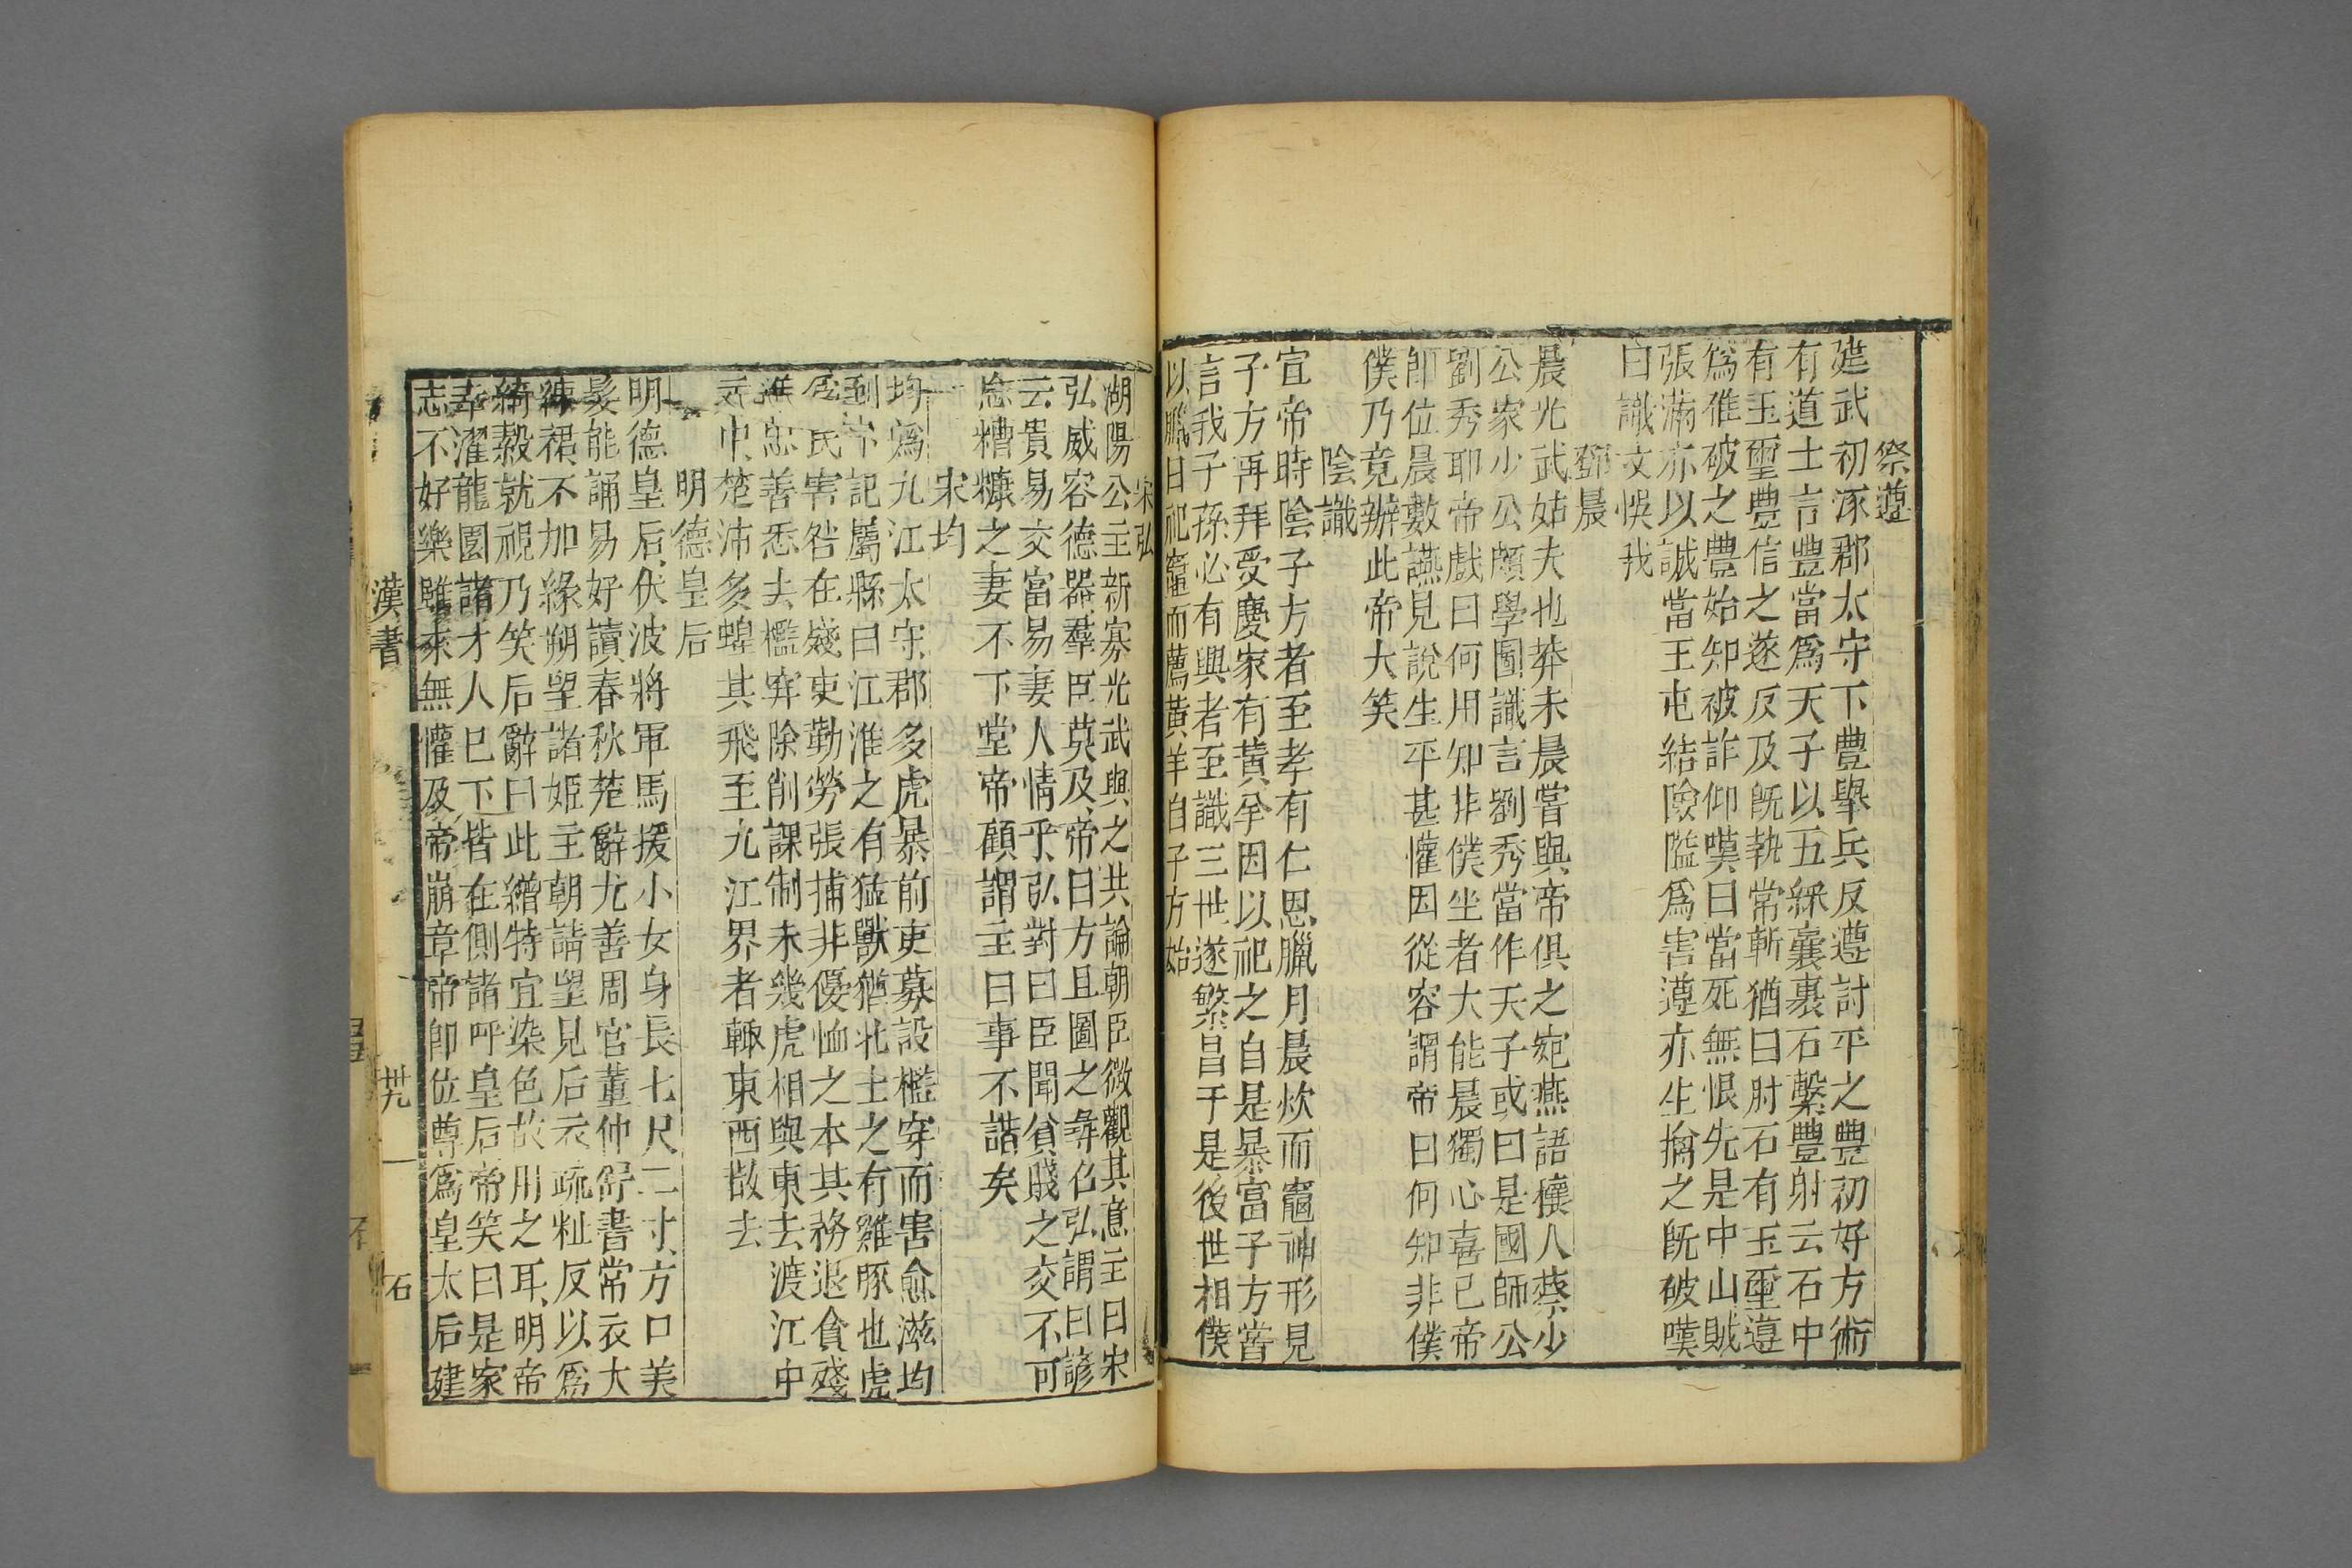 祭遵
建武初涿郡太守下豐舉兵反遵討平之豐初好方術
有道士言豐當爲天子以五綵囊裹石繫豐肘云石中
有玉璽豐信之遂反及旣執當斬猶曰肘石有玉璽遵
爲椎破之豐始知被詐仰嘆曰當死無恨先是中山賊
張滿亦以誠當王屯結險隘爲害遵亦生擒之旣破嘆
曰讖文悞我
鄧晨
晨光武姑夫也莽末晨嘗與帝俱之宛燕語穰人蔡少
公家少公頗學圖讖言劉秀當作天子或曰是國師公
劉秀耶帝戲曰何用知非僕坐者大能晨獨心喜已帝
卽位晨數讌見說生平甚懽因從容謂帝曰何知非僕
僕乃竟辦此帝大笑
陰識
宣帝時陰子方者至孝有仁恩臘月晨炊而竈神形見
子方再拜受慶家有黃羊因以祀之自是暴富子方嘗
言我子孫必有興者至識三世遂繁昌于是後世相僕
以臘日祀竈而薦黃羊自子方始
宋弘
湖陽公主新寡光武與之共論朝臣微觀其意主曰宋
弘威容德器羣臣莫及帝曰方且圖之彝召弘謂曰諺
云貴易交富易妻人情乎弘對曰臣聞貧賤之交不可
忘糟糠之妻不下堂帝顧謂主曰事不諧矣
宋均
均爲九江太守郡多虎暴前吏募設檻穽而害愈滋均
到下記屬縣曰江淮之有猛獸猶北土之有雞豚也虎
爲民害咎在殘吏勤勞張捕非優恤之本其務退貪殘
進忠善悉去檻穽除削課制未幾虎相與東去渡江中
元中楚沛多蝗其飛至九江界者輒東西散去
明德皇后
明德皇后伏波將軍馬援小女身長七尺二寸方口美
髮能誦易好讀春秋楚辭尤善周官董仲舒書常衣大
練裙不加緣朔望諸姬主朝請望見后衣疏粃反以爲
綺縠就視乃笑后辭曰此繒特宜染色故用之耳明帝
幸濯龍園諸才人巳下皆在側諸呼皇后帝笑曰是家
志不好樂雖來無懽及帝崩章帝卽位尊爲皇太后建
漢書 卅九 石